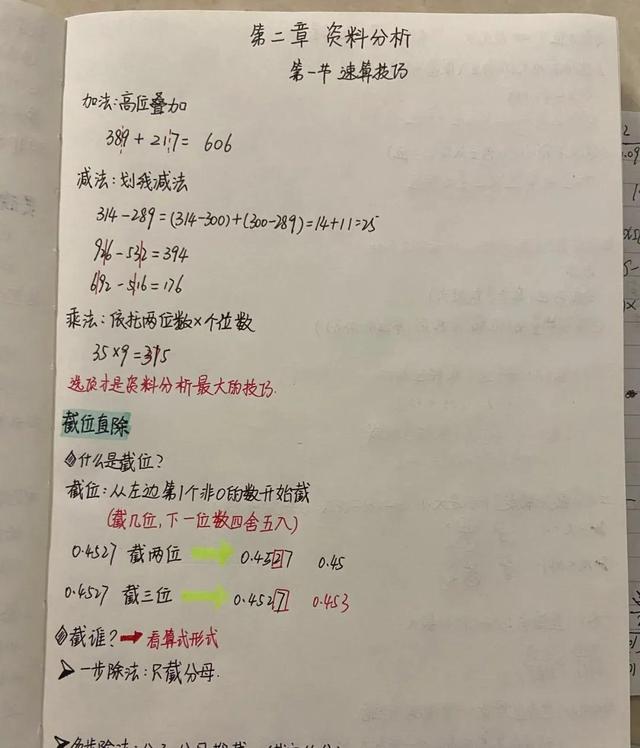 第二章 资料分析
第一节 速算技巧
加法:高位叠加
389 + 217 = 606
减法:划线减法
314-289=(314-300)+(300-289)=14+11=25
926-532=394
692-516=176
乘法:依托两位数×个位数
35×9=315
选项才是资料分析最大的技巧.
截位直除
什么是截位?
截位:从左边第1个非0的数开始截
(截几位,下一位数四舍五入)
0.4527 截两位 → 0.4527 0.45
0.4527 截三位 → 0.4527 0.453
截谁?→看算式形式
➤一步除法:只截分母.